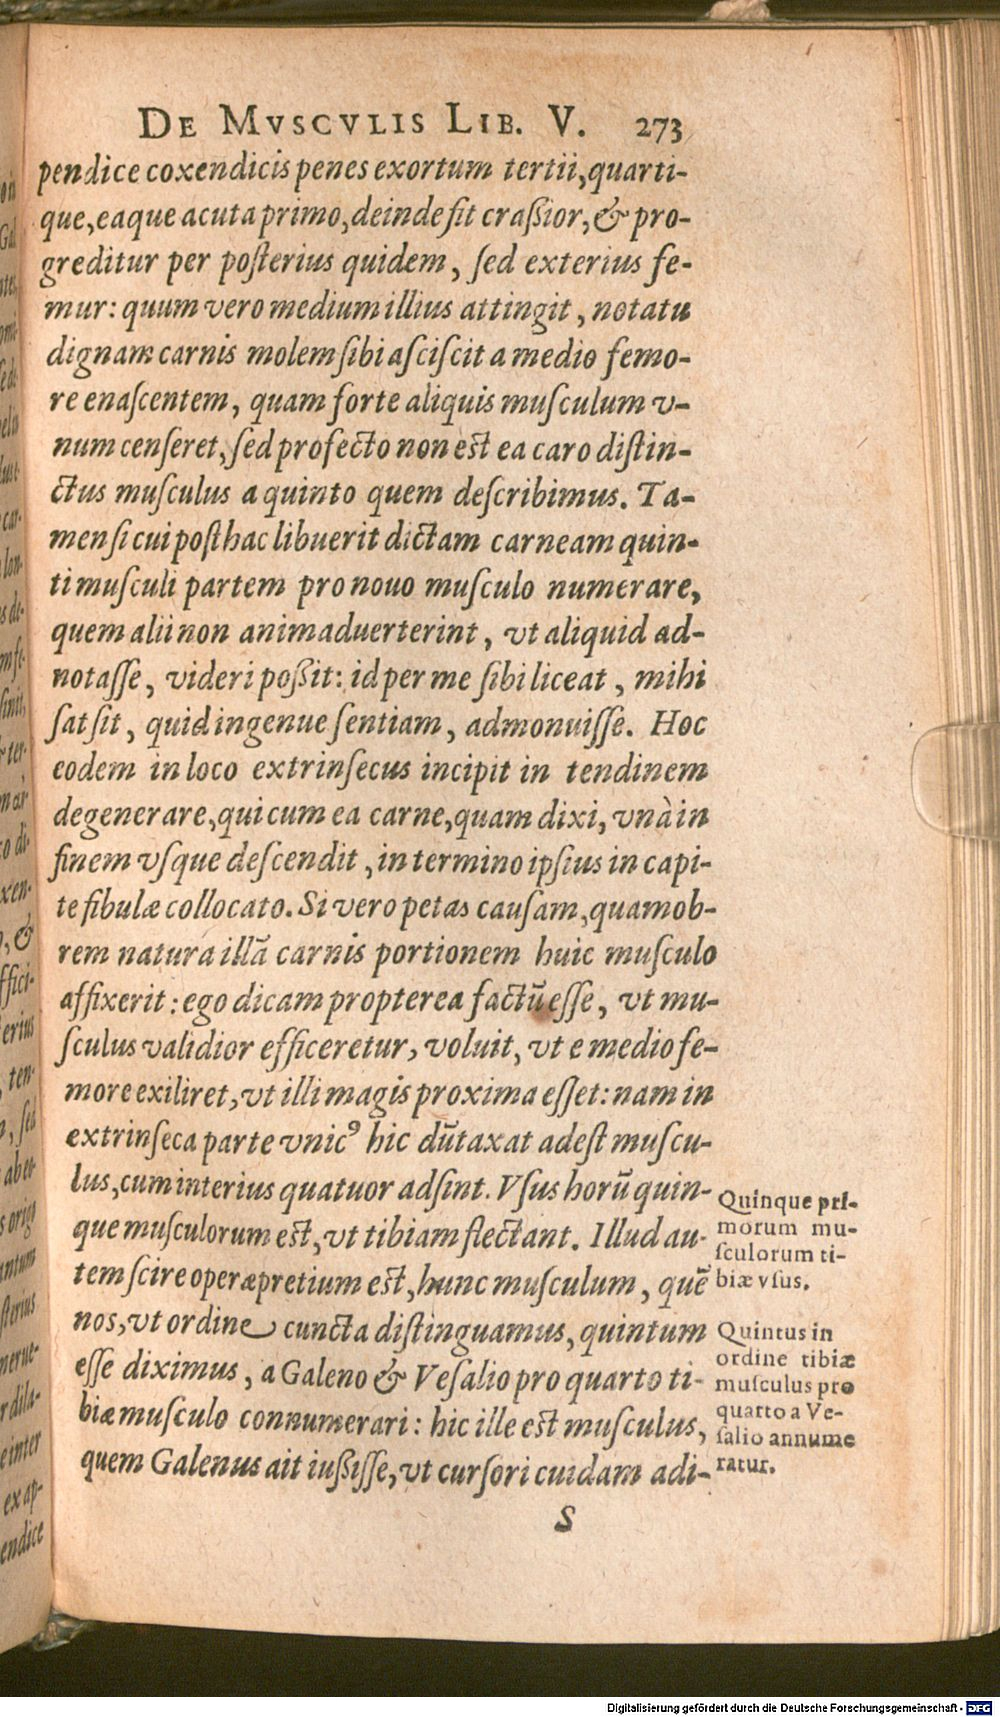 DE MVSCVLIS LIB. V. 273
pendice coxendicis penes exortum tertii, quarti-
que, eaque acuta primo, deinde fit craßior, & pro-
greditur per poſterius quidem, ſed exterius fe-
mur: quum vero medium illius attingit, notatu
dignam carnis molem ſibi aſciſcit a medio femo-
re enaſcentem, quam forte aliquis muſculum v-
num cenſeret, ſed profecto non est ea caro diſtin-
ctus muſculus a quinto quem deſcribimus. Ta-
men ſi cui poſthac libuerit dictam carneam quin-
ti muſculi partem pro nouo muſculo numerare,
quem alii non animaduerterint, vt aliquid ad-
notaſſe, videri poßit: id per me ſibi liceat, mihi
ſat ſit, quid ingenue ſentiam, admonuiſſe. Hoc
eodem in loco extrinſecus incipit in tendinem
degenerare, qui cum ea carne, quam dixi, vnà in
finem vſque deſcendit, in termino ipſius in capi-
te fibulæ collocato. Si vero petas cauſam, quamob-
rem natura illã carnis portionem huic muſculo
affixerit: ego dicam propterea factũ eſſe, vt mu-
ſculus validior efficeretur, voluit, vt e medio fe-
more exiliret, vt illi magis proxima eſſet: nam in
extrinſeca parte vnicꝰ hic dũtaxat adeſt muſcu-
lus, cum interius quatuor adſint. Vſus horũ quin-
que muſculorum est, vt tibiam flectant. Illud au-
tem ſcire operæpretium est, hunc muſculum, quẽ
nos, vt ordine cuncta diſtinguamus, quintum
eſſe diximus, a Galeno & Veſalio pro quarto ti-
biæ muſculo connumerari: hic ille est muſculus,
quem Galenus ait iußiſſe, vt curſori cuidam adi-
S
Quinque pri-
morum mu-
ſculorum ti-
biæ vſus.
Quintus in
ordine tibiæ
muſculus pro
quarto a Ve-
ſalio annume
ratur.
Digitalisierung gefördert durch die Deutsche Forschungsgemeinschaft - DFG